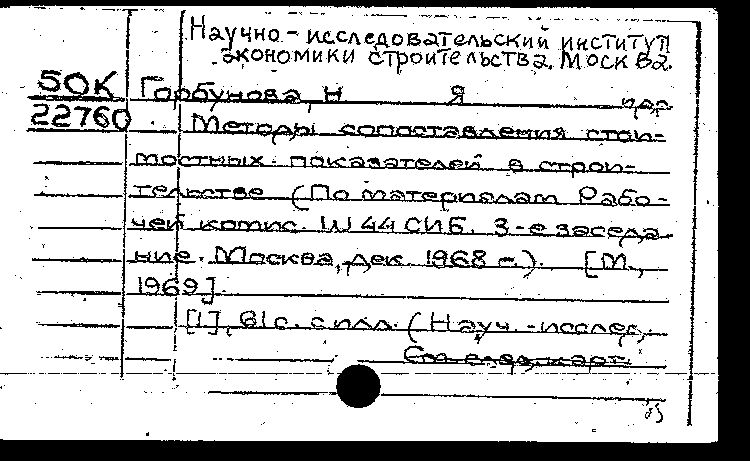 Научно-исследовательский институт
экономики строительства. Москва.
50К Горбунова, Н Я пер.
22760 Методы сопоставления стои-
мостных показателей в строи-
тельстве (По материалам Рабо-
чей комис. W 44 СИБ. 3-е заседа-
ние. Москва, дек. 1968 г.). [М.,
1969]
[1], 61 с. с илл. (Науч.-исслед.
См след. карт.